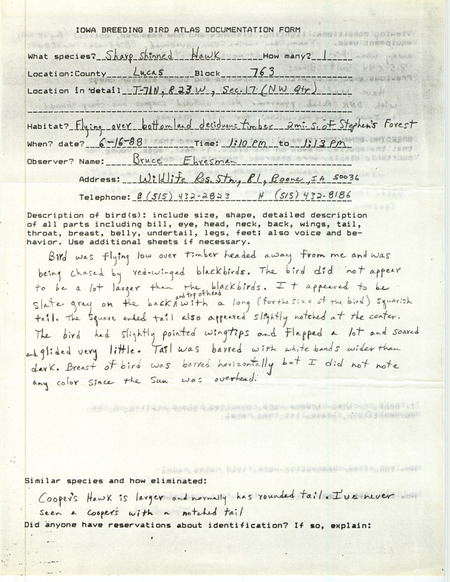 IOWA BREEDING BIRD ATLAS DOCUMENTATION FORM
What species? Sharp shinned Hawk How many? 1
Location: County Lucas Block 763
Location in detail T-71N, R 23 W, Sec. 17 (NW Qtr)
Habitat? Flying over bottomland deciduous timber 2mi. S. of Stephen's Forest
When? date? 6-16-88 Time: 1:10 PM to 1:13 PM
Observer? Name: Bruce Ehresman
Address: Wildlife Res. Stn, R1, Boone, IA 50036
Telephone: B (515) 432-2823 H (515) 432-8186
Description of bird(s): include size, shape, detailed description
of all parts including bill, eye, head, neck, back, wings, tail,
throat, breast, belly, undertail, legs, feet; also voice and be-
havior. Use additional sheets if necessary.
Bird was flying low over timber headed away from me and was
being chased by red-winged blackbirds. The bird did not appear
to be a lot larger than the blackbirds. It appeared to be
slate gray on the back and top of head with a long (for the size of the bird) squarish
tail. The square ended tail also appeared slightly notched at the center.
The bird had slightly pointed wingtips and flapped a lot and soared
and glided very little. Tail was barred with white bands wider than
dark. Breast of bird was barred horizontally but I did not note
any color since the sun was overhead.
Similar species and how eliminated:
Cooper's Hawk is larger and normally has rounded tail. I've never
seen a Coopers with a notched tail
Did anyone have reservations about identification? If so, explain: